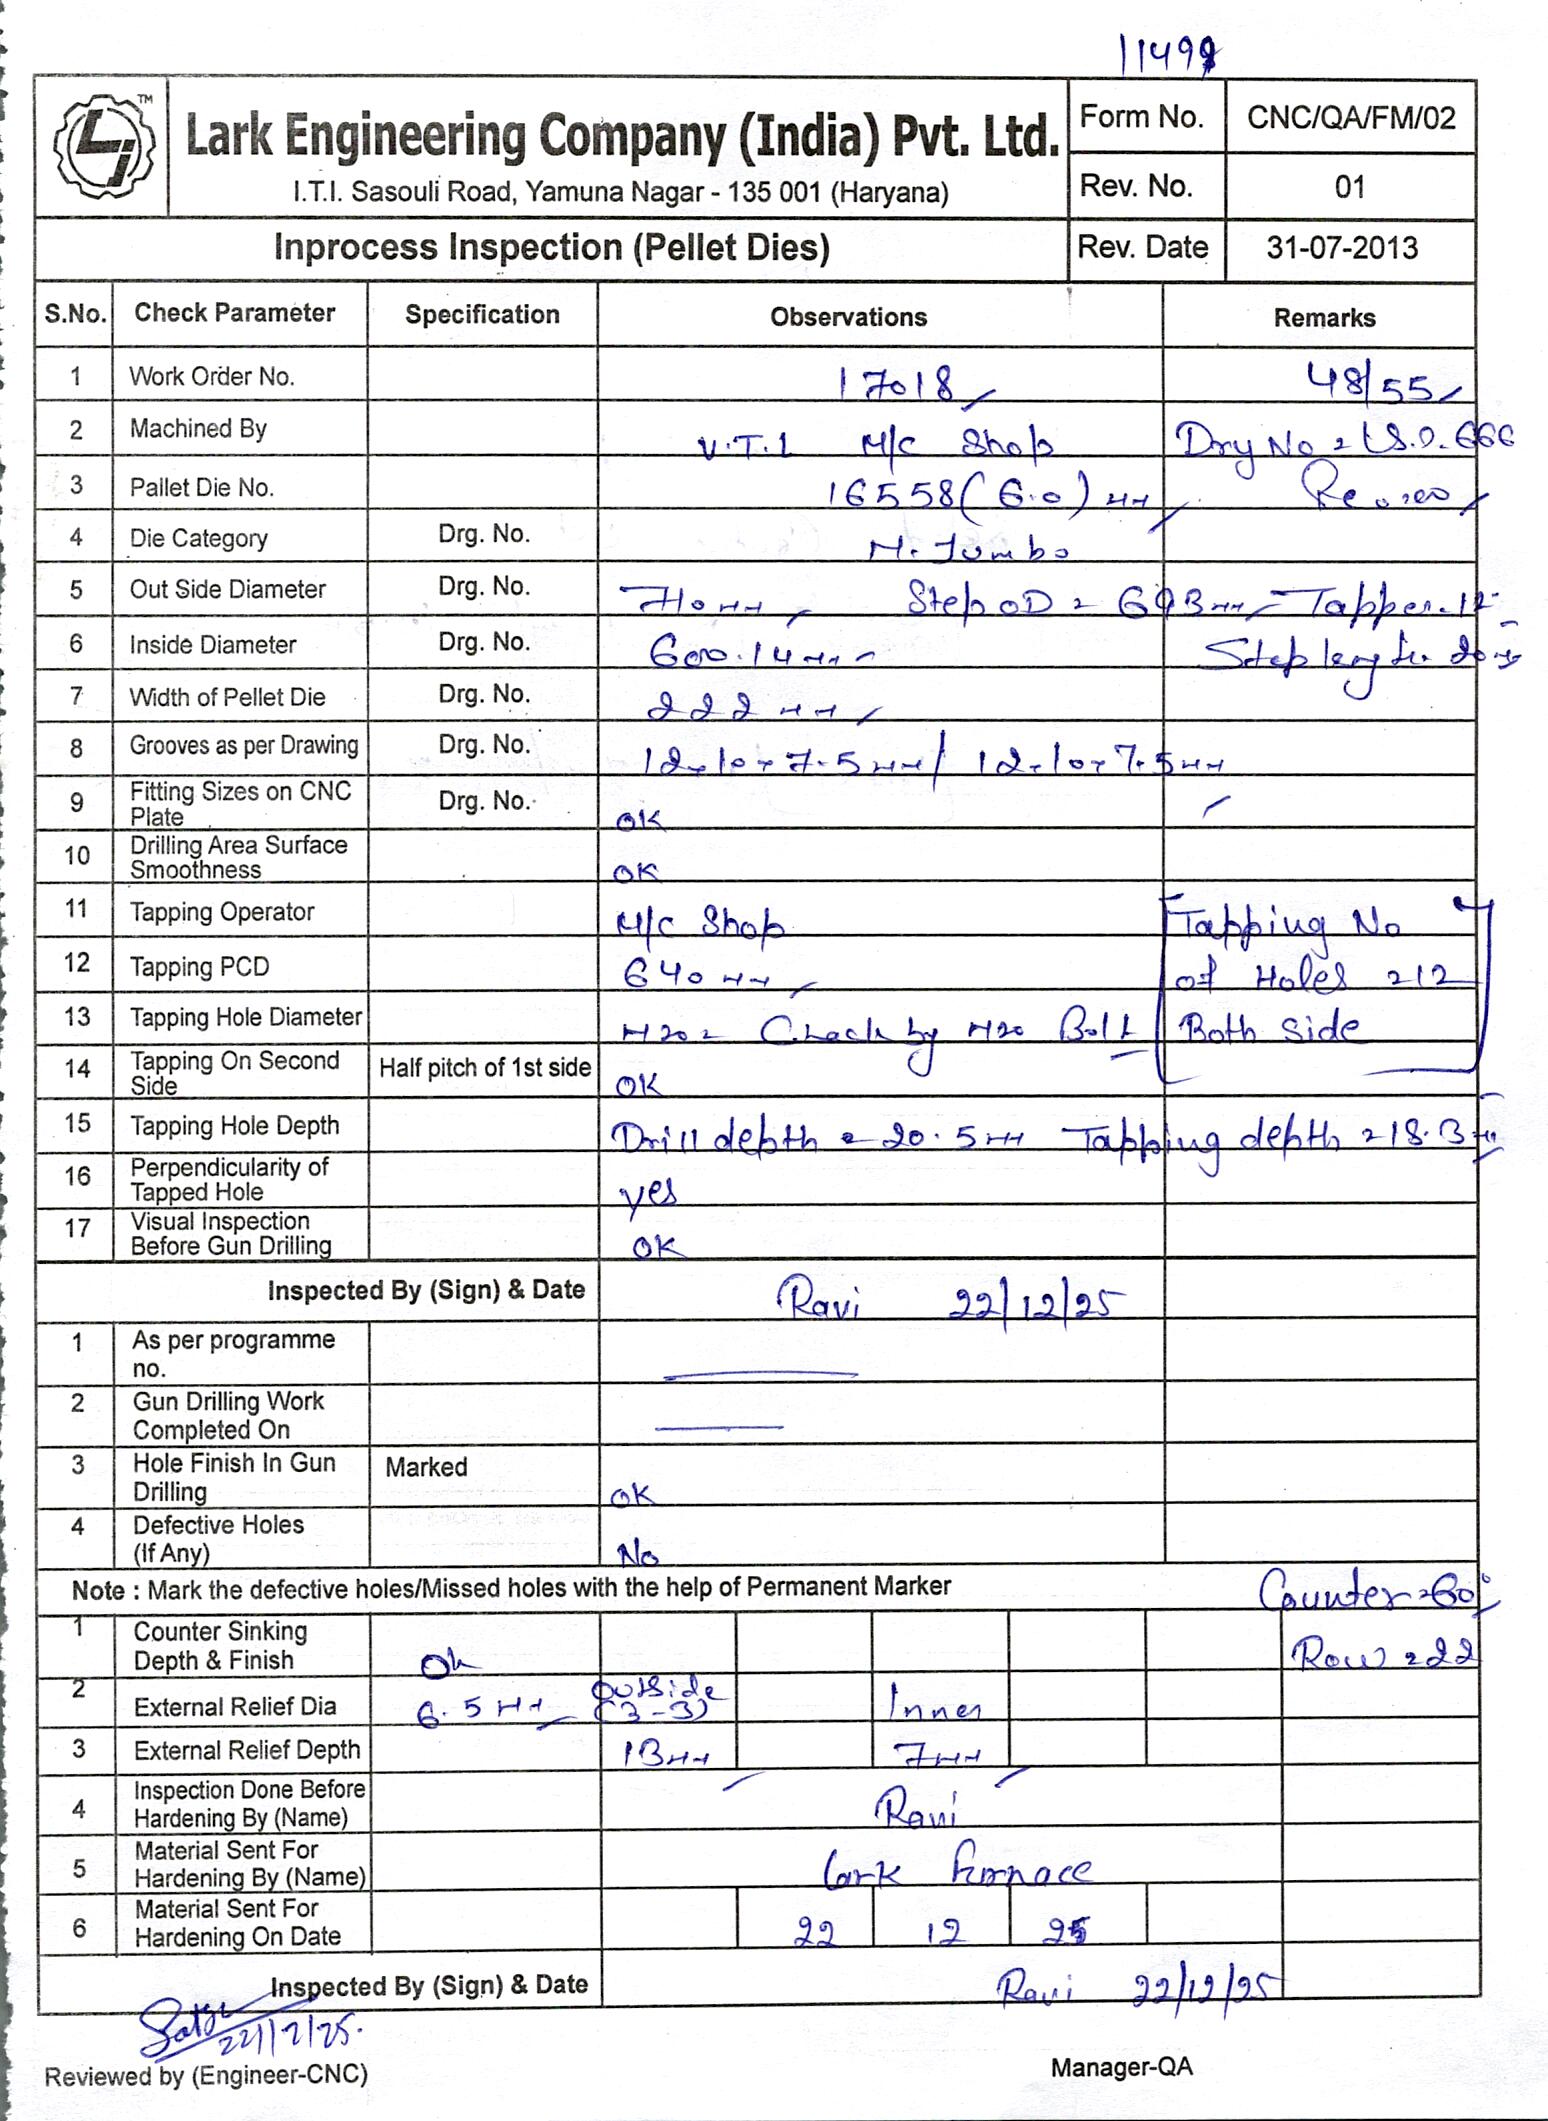 TM
Lark Engineering Company (India) Pvt. Ltd.
I.T.I. Sasouli Road, Yamuna Nagar - 135 001 (Haryana)
Form No. CNC/QA/FM/02
Rev. No. 01
Inprocess Inspection (Pellet Dies) Rev. Date 31-07-2013
S.No. Check Parameter Specification Observations Remarks
1 Work Order No. 17018 48/55
2 Machined By V.T.L M/c Shop
3 Pallet Die No. 16558 (6.0) mm
4 Die Category Drg. No. M. Jumbo
5 Out Side Diameter Drg. No. 710 mm Step OD = 693 mm Tapper
6 Inside Diameter Drg. No. 600.14 mm Step length = 20 mm
7 Width of Pellet Die Drg. No. 222 mm
8 Grooves as per Drawing Drg. No. 12×10×7.5 mm / 12×10×7.5 mm
9 Fitting Sizes on CNC Plate Drg. No. OK
10 Drilling Area Surface Smoothness OK
11 Tapping Operator M/c Shop Tapping No
12 Tapping PCD 640 mm of Holes = 12
13 Tapping Hole Diameter M20 = Check by M20 Bolt Both Side
14 Tapping On Second Side Half pitch of 1st side OK
15 Tapping Hole Depth Drill depth = 20.5 mm Tapping depth = 18.3 mm
16 Perpendicularity of Tapped Hole yes
17 Visual Inspection Before Gun Drilling OK
Inspected By (Sign) & Date Ravi 22/12/25
1 As per programme no.
2 Gun Drilling Work Completed On
3 Hole Finish In Gun Drilling Marked OK
4 Defective Holes (If Any) No
Note : Mark the defective holes/Missed holes with the help of Permanent Marker Counter = 60°
1 Counter Sinking Depth & Finish Ok Row = 22
2 External Relief Dia 6.5 mm outside (3-3) Inner
3 External Relief Depth 13 mm 7 mm
4 Inspection Done Before Hardening By (Name) Ravi
5 Material Sent For Hardening By (Name) Lark Furnace
6 Material Sent For Hardening On Date 22 12 25
Inspected By (Sign) & Date Ravi 22/12/25
22/12/25.
Reviewed by (Engineer-CNC) Manager-QA